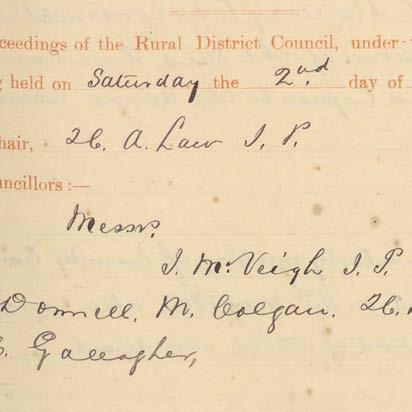 ceedings of the Rural District Council, under
g held on Saturday the 2nd day of
hair, H. A. Law J. P.
uncillors :—
Messrs.
J. McVeigh J. P.
Donnell, M. Colgan, H.
Gallagher,